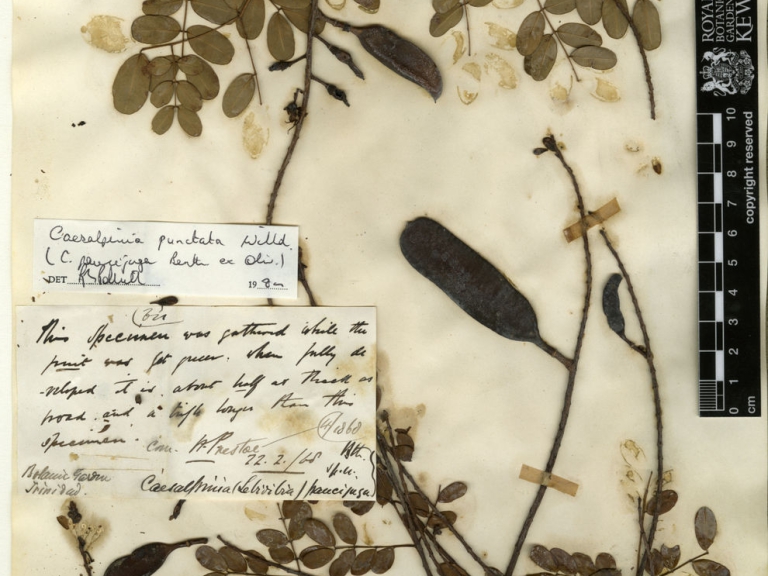 Caesalpinia punctata Willd.
(C. paucijuga Benth ex Oliv.)
DET
19
This specimen was gathered while the
fruit was yet green. when fully de
-veloped it is about half as thick as
broad and a trifle longer than this
specimen.
com. H. Prestoe
22.2./68
H/1868
Bth.
sp. n.
Botanic Garden
Trinidad.
Caesalpinia (Lebidibia) paucijuga
ROYAL
BOTANIC
GARDENS
KEW
copyright reserved
10
9
8
7
6
5
4
3
2
1
0
cm